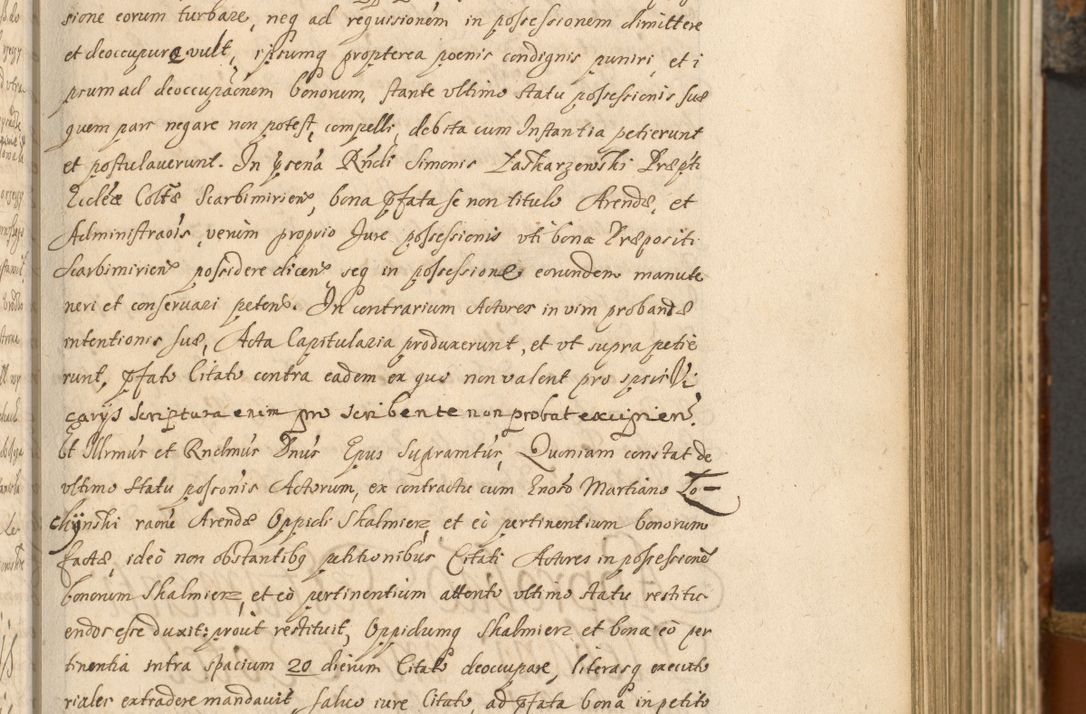 sione eorum turbare, neq ad requisionem in possessionem dimittere
et deoccupare vult, ipsumq propterea poenis condignis puniri, et i
psum ad deoccupãonem bonorum, stante vltimo statu possessionis suæ
quem pars negare non potest, compelli, debita cum Instantia petierunt
et postulaverunt. In pſenã Rndi Simonis Zaskarzewski Præpti
Eccleæ Coltæ Scarbimirien, bona pfata se non titulo Arendæ, et
Administraõis, verum proprio Jure possessionis vti bona Præpositi
Scarbimirien possidere dicen, seq in possessione eorundem manute
neri et conservari peten. In contrarium Actores in vim probandæ
intentionis suæ, Acta Capitularia produxerunt, et vt supra petie
runt, pfato Citato contra eadem ex quo non valent pro ipsis Vi
carijs Scriptura enim pro scribente non probat excipien.
Et Illrmus et Rndmus Dnus Epus Supramtus, Quoniam constat de
vltimo Statu possonis Actorum, ex contractu cum Gnoso Martiano Lo-
chynski raõne Arendæ Oppidi Skalmierz et eo pertinentium bonorum
factæ, ideo non obstantibq petitionibus Citati Actores in possessionē
bonorum Skalmierz, et eo pertinentium attento vltimo statu restitu
endos esse duxit: prout restituit, Oppidumq Skalmierz et bona eo per
tinentia intra spacium 20 dierum Citato deoccupare, literasq executo
riales extradere mandavit, salvo iure Citato, ad pfata bona in petito